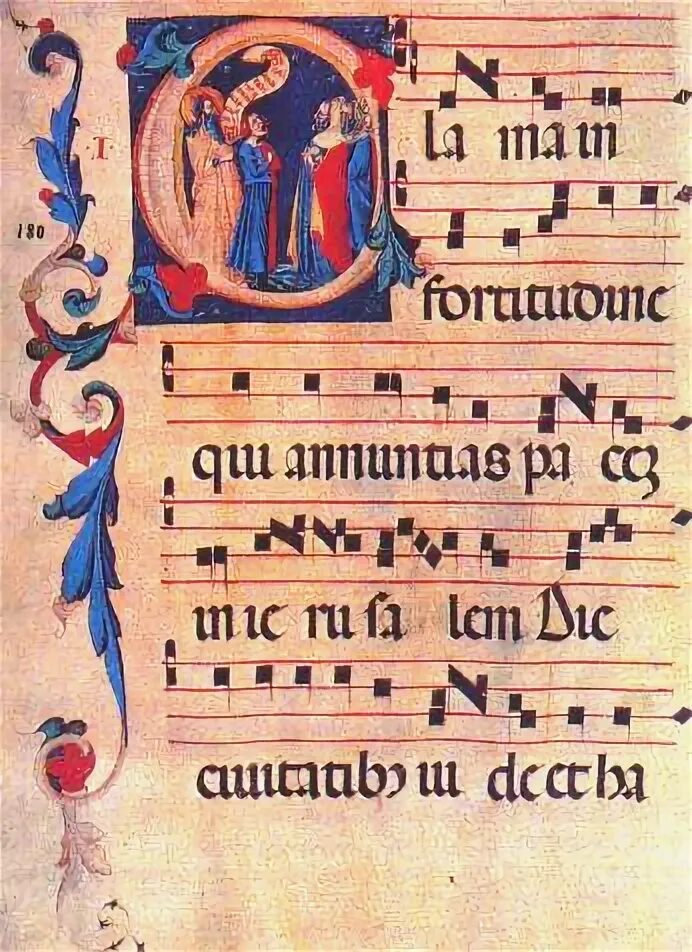 ·I·
C la ma in
180
fortitudine
qui annuntias pa cēꝫ
in ie ru sa lem Dic
ciuitatibꝫ iu de et ha